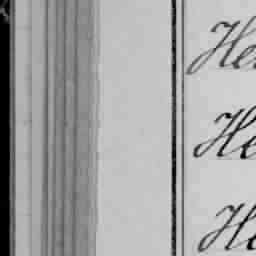 He
He
He